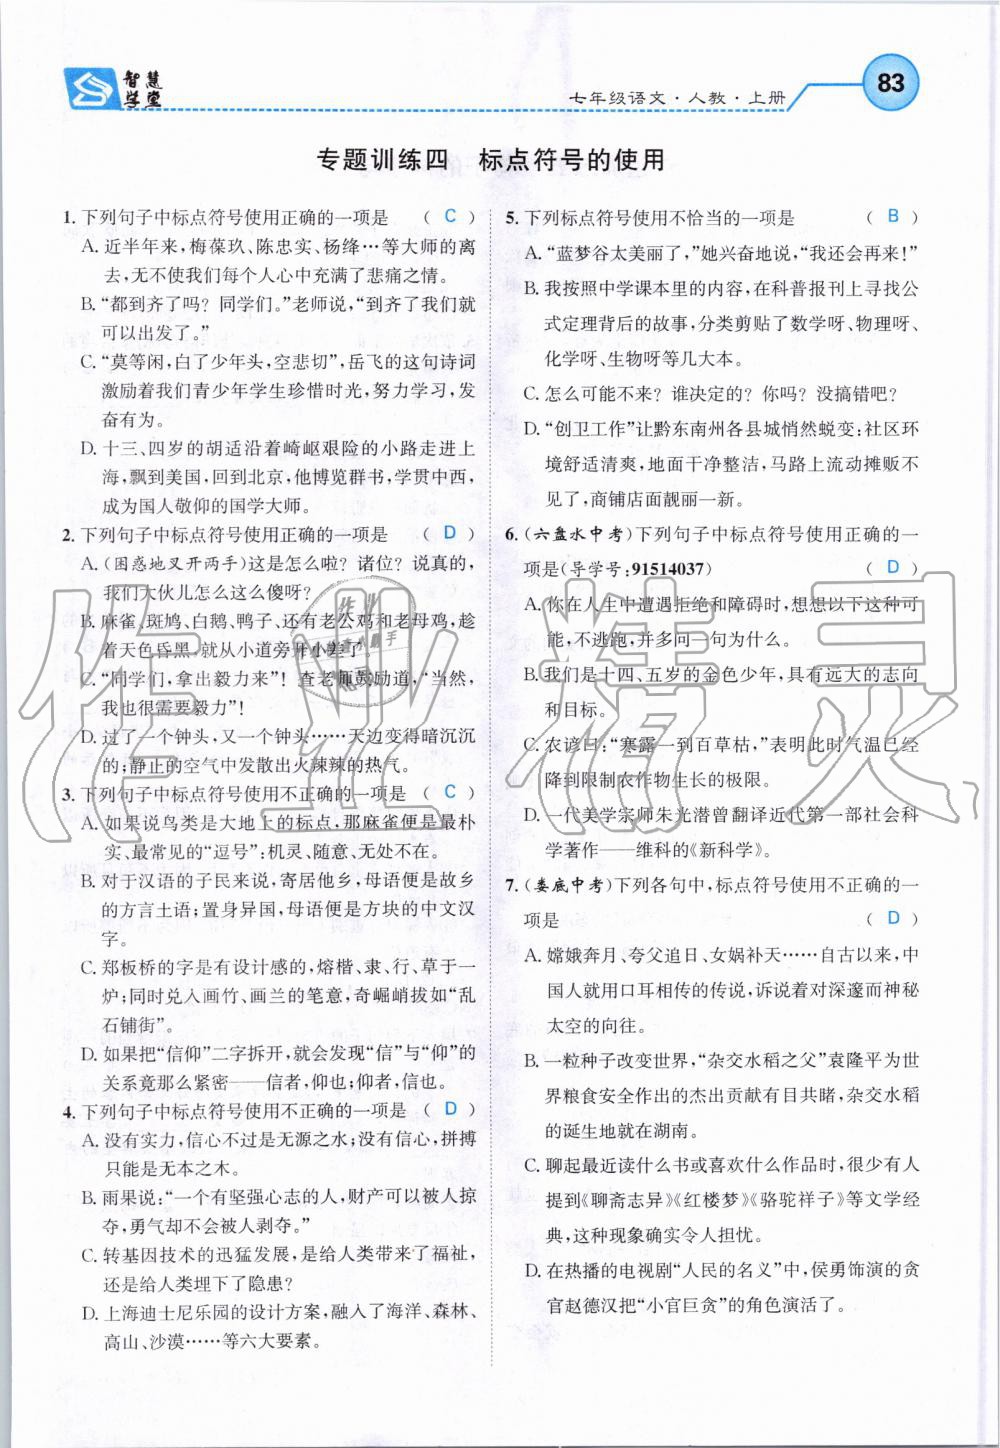 智慧
学堂
七年级语文·人教·上册
83
专题训练四 标点符号的使用
1. 下列句子中标点符号使用正确的一项是 ( C )
A. 近半年来,梅葆玖、陈忠实、杨绛…等大师的离
去,无不使我们每个人心中充满了悲痛之情。
B. “都到齐了吗? 同学们。”老师说,“到齐了我们就
可以出发了。”
C. “莫等闲,白了少年头,空悲切”,岳飞的这句诗词
激励着我们青少年学生珍惜时光,努力学习,发
奋有为。
D. 十三、四岁的胡适沿着崎岖艰险的小路走进上
海,飘到美国,回到北京,他博览群书,学贯中西,
成为国人敬仰的国学大师。
2. 下列句子中标点符号使用正确的一项是 ( D )
A. (困惑地叉开两手)这是怎么啦? 诸位? 说真的,
我们大伙儿怎么这么傻呀?
B. 麻雀、斑鸠、白鹅、鸭子、还有老公鸡和老母鸡,趁
着天色昏黑,就从小道旁开小差了
C. “同学们,拿出毅力来”! 查老师鼓励道,“当然,
我也很需要毅力”!
D. 过了一个钟头,又一个钟头……天边变得暗沉沉
的;静止的空气中发散出火辣辣的热气。
3. 下列句子中标点符号使用不正确的一项是 ( C )
A. 如果说鸟类是大地上的标点,那麻雀便是最朴
实、最常见的“逗号”:机灵、随意、无处不在。
B. 对于汉语的子民来说,寄居他乡,母语便是故乡
的方言土语;置身异国,母语便是方块的中文汉
字。
C. 郑板桥的字是有设计感的,熔楷、隶、行、草于一
炉;同时兑入画竹、画兰的笔意,奇崛峭拔如“乱
石铺街”。
D. 如果把“信仰”二字拆开,就会发现“信”与“仰”的
关系竟那么紧密——信者,仰也;仰者,信也。
4. 下列句子中标点符号使用不正确的一项是 ( D )
A. 没有实力,信心不过是无源之水;没有信心,拼搏
只能是无本之木。
B. 雨果说:“一个有坚强心志的人,财产可以被人掠
夺,勇气却不会被人剥夺。”
C. 转基因技术的迅猛发展,是给人类带来了福祉,
还是给人类埋下了隐患?
D. 上海迪士尼乐园的设计方案,融入了海洋、森林、
高山、沙漠……等六大要素。
5. 下列标点符号使用不恰当的一项是 ( B )
A. “蓝梦谷太美丽了,”她兴奋地说,“我还会再来!”
B. 我按照中学课本里的内容,在科普报刊上寻找公
式定理背后的故事,分类剪贴了数学呀、物理呀、
化学呀、生物呀等几大本。
C. 怎么可能不来? 谁决定的? 你吗? 没搞错吧?
D. “创卫工作”让黔东南州各县城悄然蜕变:社区环
境舒适清爽,地面干净整洁,马路上流动摊贩不
见了,商铺店面靓丽一新。
6. (六盘水中考)下列句子中标点符号使用正确的一
项是(导学号:91514037) ( D )
A. 你在人生中遭遇拒绝和障碍时,想想以下这种可
能,不逃跑,并多问一句为什么。
B. 我们是十四、五岁的金色少年,具有远大的志向
和目标。
C. 农谚曰:“寒露一到百草枯,”表明此时气温已经
降到限制农作物生长的极限。
D. 一代美学宗师朱光潜曾翻译近代第一部社会科
学著作——维科的《新科学》。
7. (娄底中考)下列各句中,标点符号使用不正确的一
项是 ( D )
A. 嫦娥奔月、夸父追日、女娲补天……自古以来,中
国人就用口耳相传的传说,诉说着对深邃而神秘
太空的向往。
B. 一粒种子改变世界,“杂交水稻之父”袁隆平为世
界粮食安全作出的杰出贡献有目共睹,杂交水稻
的诞生地就在湖南。
C. 聊起最近读什么书或喜欢什么作品时,很少有人
提到《聊斋志异》《红楼梦》《骆驼祥子》等文学经
典,这种现象确实令人担忧。
D. 在热播的电视剧“人民的名义”中,侯勇饰演的贪
官赵德汉把“小官巨贪”的角色演活了。
作业精灵